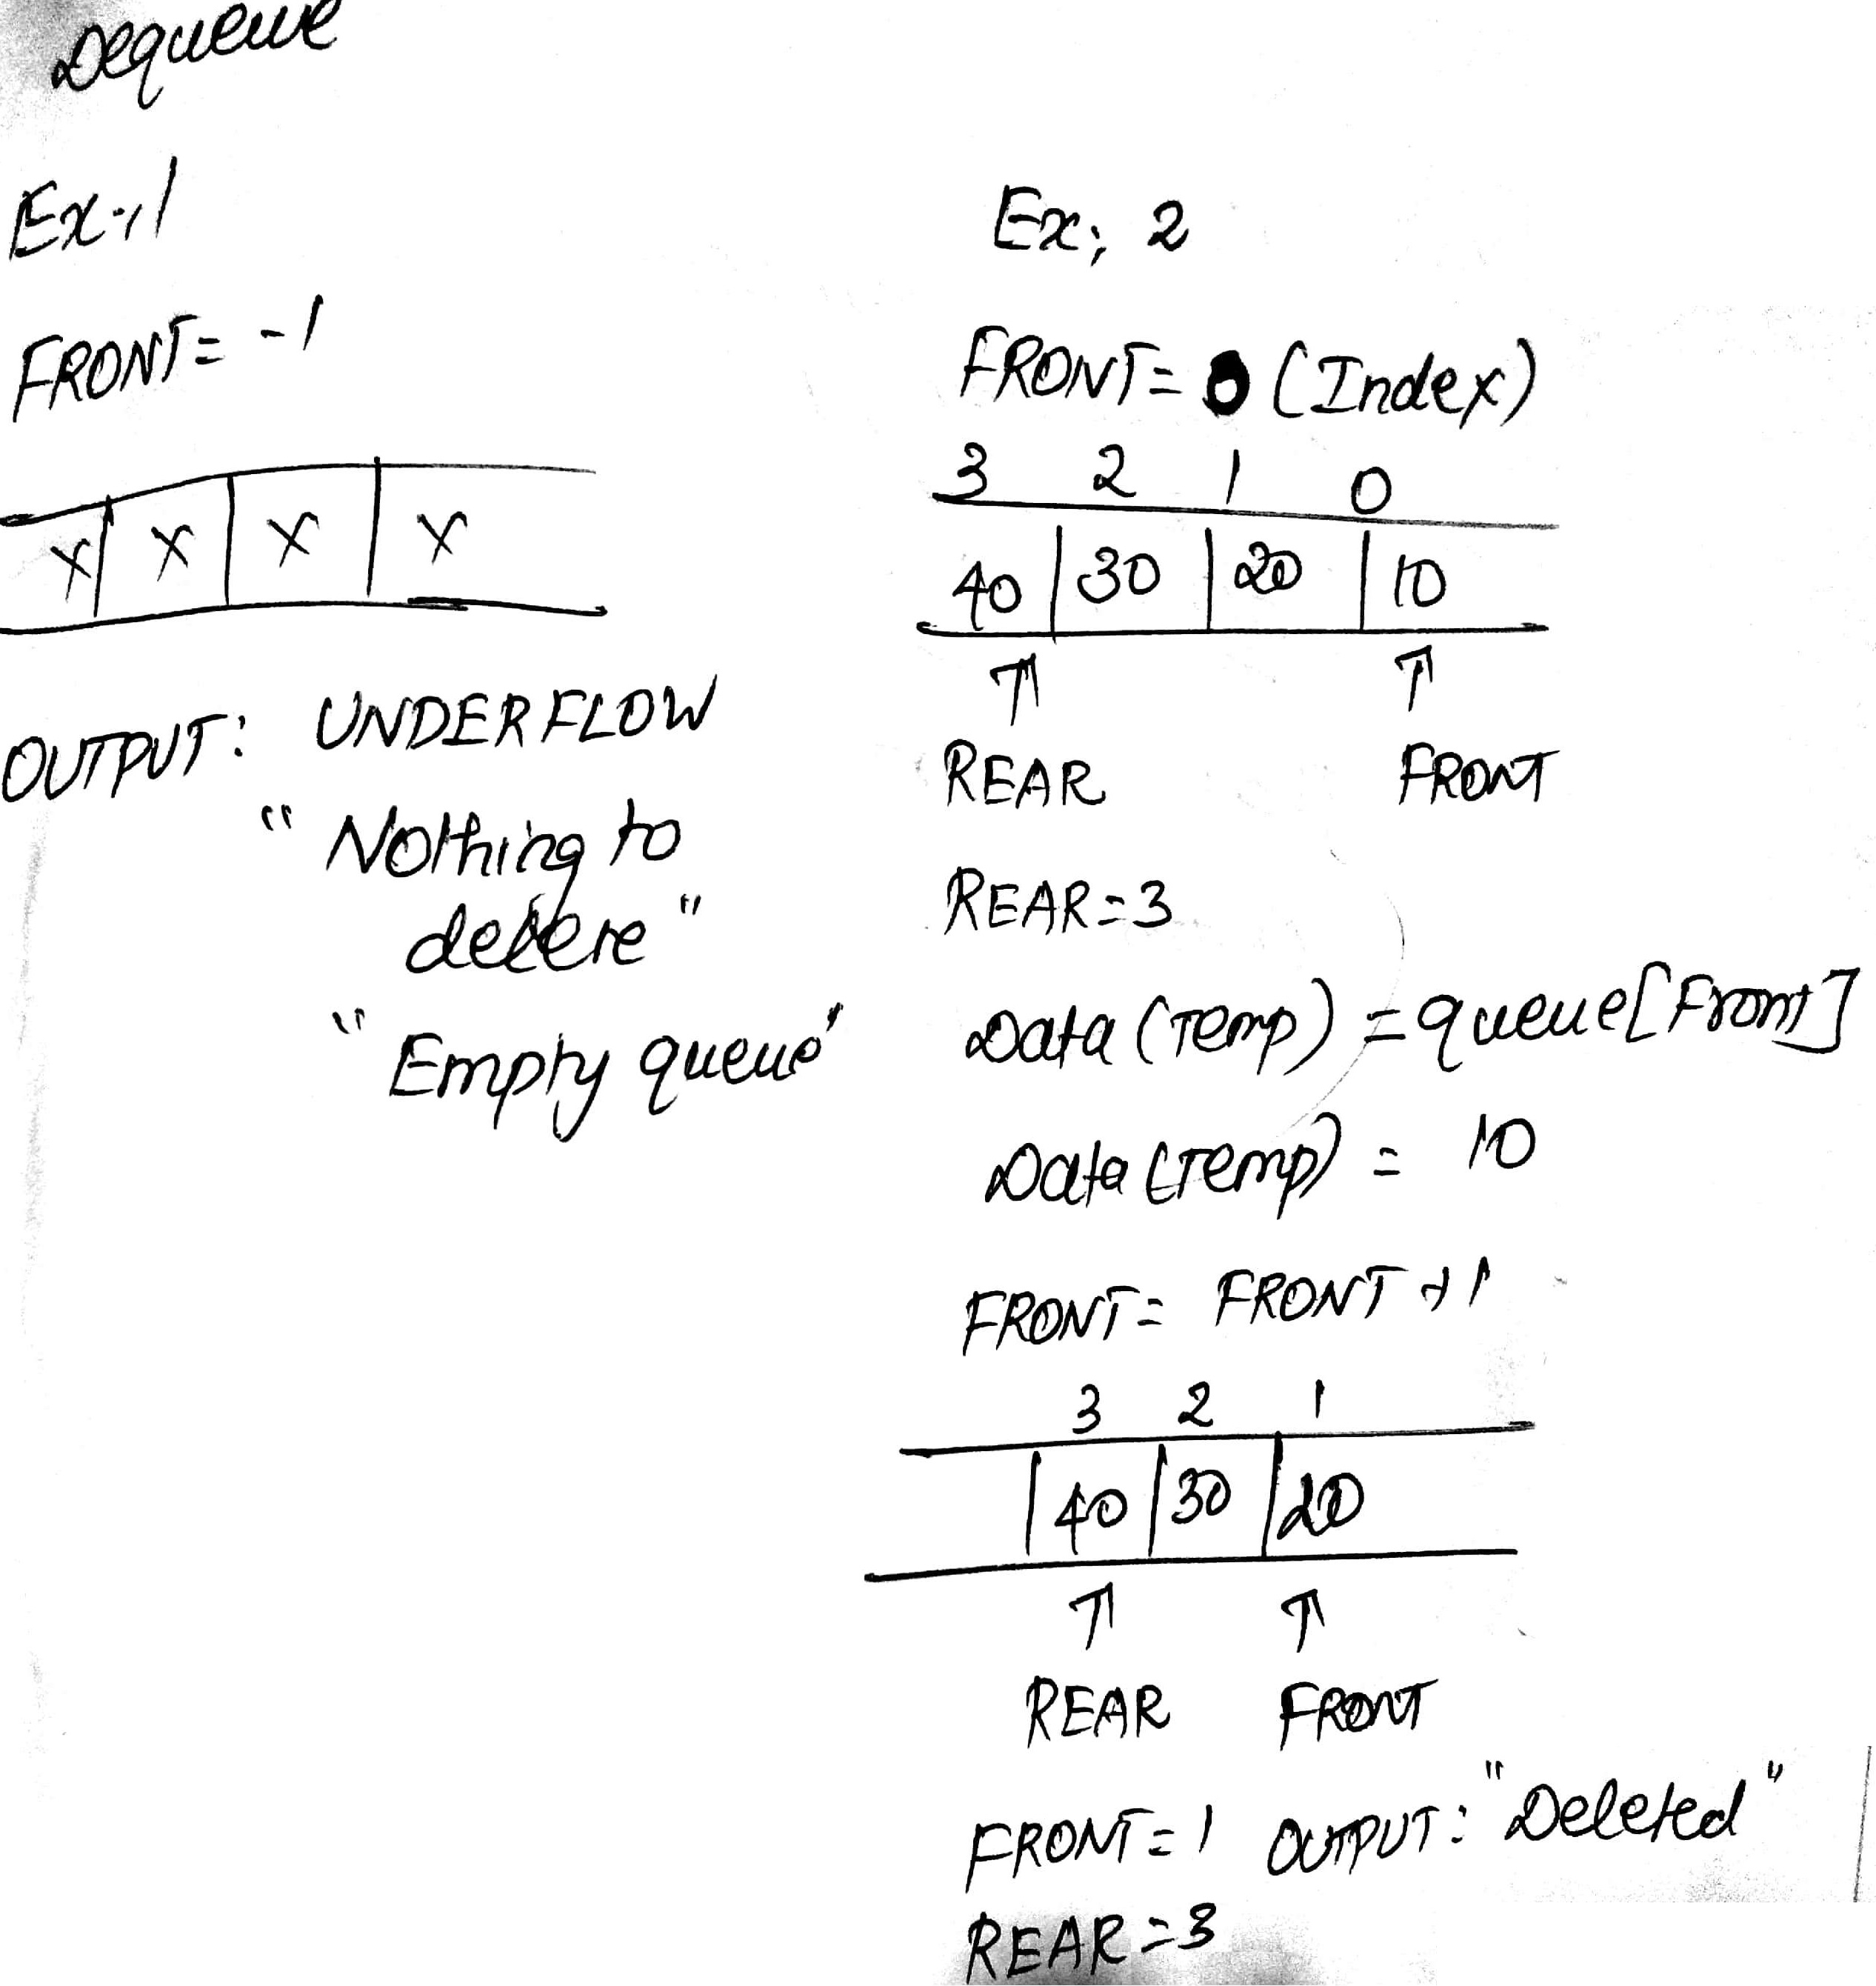 Dequeue
Ex:1
FRONT= -1
X X X X
OUTPUT: UNDERFLOW
"Nothing to
delete"
"Empty queue"
Ex: 2
FRONT= 0 (Index)
3 2 1 0
40 30 20 10
↑ ↑
REAR FRONT
REAR=3
Data (Temp) = queue[Front]
Data (Temp) = 10
FRONT= FRONT +1
3 2 1
40 30 20
↑ ↑
REAR FRONT
FRONT=1 OUTPUT: "Deleted"
REAR=3